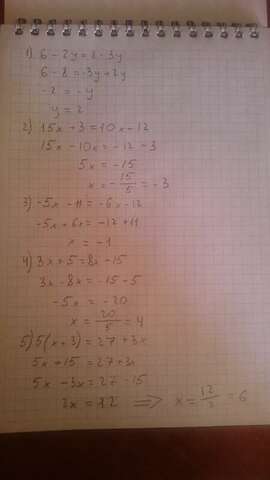 1) 6 - 2y = 8 - 3y
6 - 8 = -3y + 2y
-2 = -y
y = 2
2) 15x + 3 = 10x - 12
15x - 10x = -12 - 3
5x = -15
x = -15/5 = -3
3) -5x - 11 = -6x - 12
-5x + 6x = -12 + 11
x = -1
4) 3x + 5 = 8x - 15
3x - 8x = -15 - 5
-5x = -20
x = 20/5 = 4
5) 5(x + 3) = 27 + 3x
5x + 15 = 27 + 3x
5x - 3x = 27 - 15
2x = 12 ⟹ x = 12/2 = 6